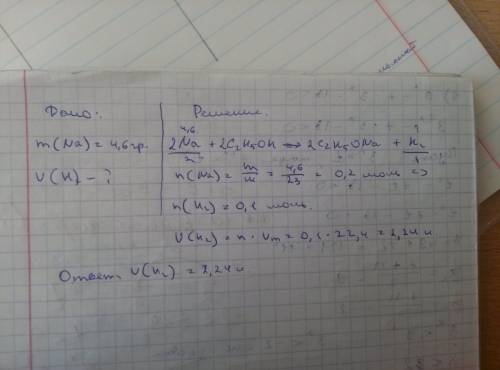 Дано:
Решение.
m(Na) = 4,6 гр.
V(H) - ?
4,6
2Na + 2C₂H₅OH => 2C₂H₅ONa + H₂
2
1
n(Na) = m/M = 4,6/23 = 0,2 моль =>
n(H₂) = 0,1 моль.
V(H₂) = n · Vm = 0,1 · 22,4 = 2,24 л
Ответ V(H₂) = 2,24 л